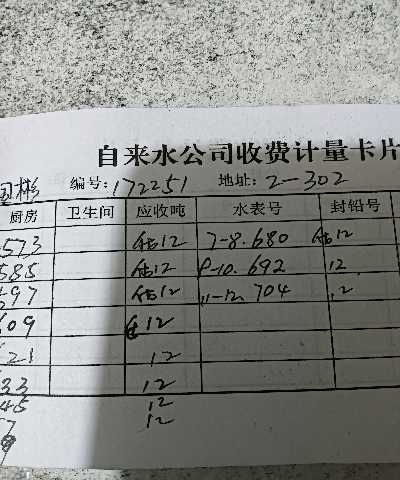 自来水公司收费计量卡片
彬 编号: 172251 地址: 2-302
厨房 卫生间 应收吨 水表号 封铅号
573 估12 7-8.680 估12
585 估12 9-10.692 12
597 估12 11-12.704 12
609 估12
621 12
633 12
645 12
12